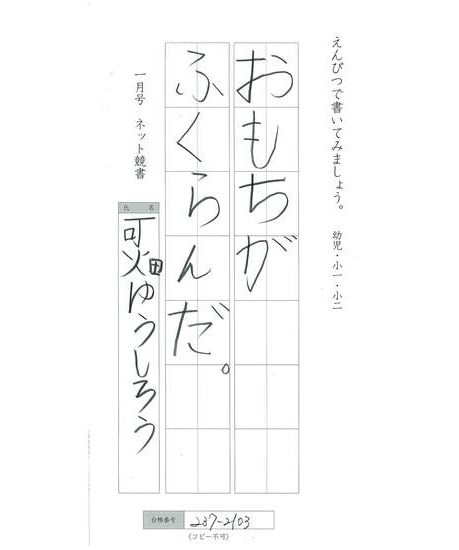 えんぴつで書いてみましょう。 幼児・小一・小二
おもちが
ふくらんだ。
一月号 ネット競書
氏名
可畑ゆうしろう
台帳番号 237-2103
(コピー不可)